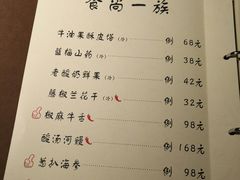 餐尚一族
牛油果酥皮塔(冷) 例 68元
蓝莓山药(冷) 例 38元
香酸奶鲜果(冷) 例 42元
藤椒兰花干(冷) 例 32元
椒麻牛舌 例 98元
酸汤河鳗 例 168元
葱扒海参 例 198元